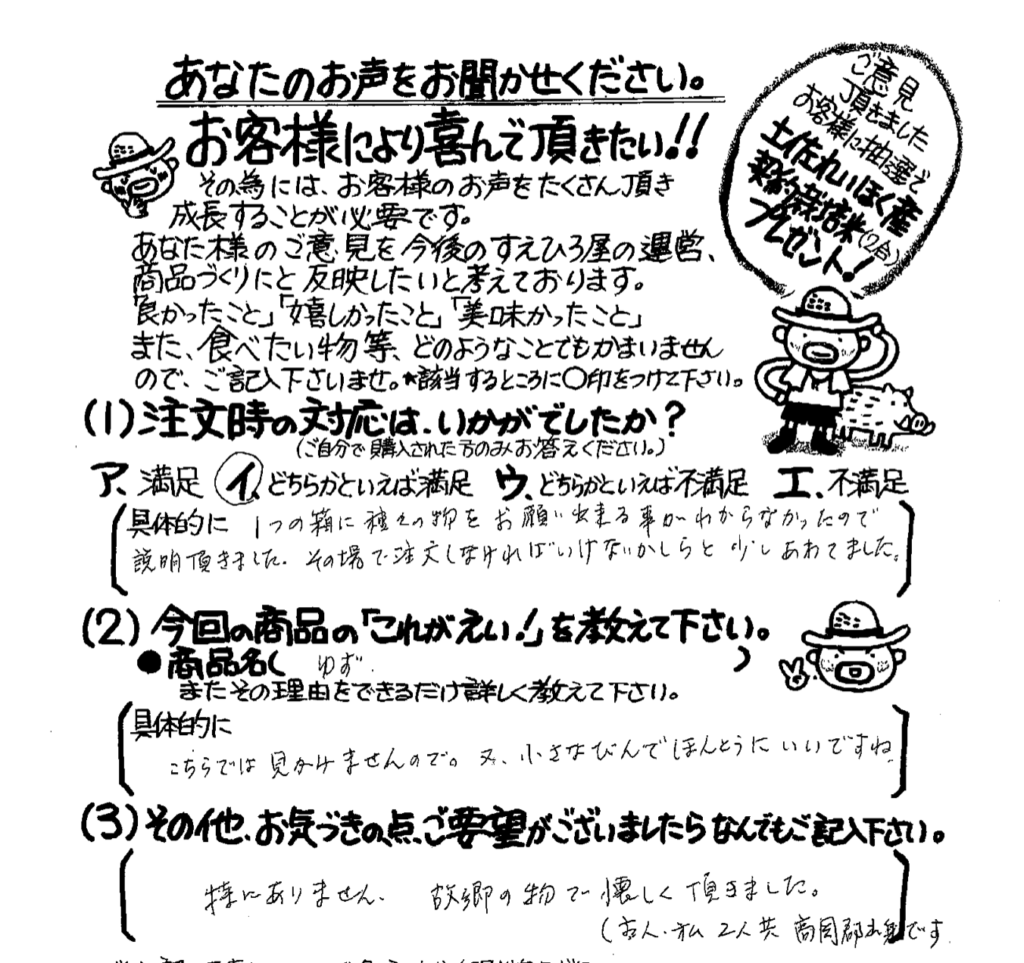 あなたのお声をお聞かせください。
お客様により喜んで頂きたい!!
その為には、お客様のお声をたくさん頂き
成長することが必要です。
あなた様のご意見を今後のすえひろ屋の運営、
商品づくりにと反映したいと考えております。
「良かったこと」「嬉しかったこと」「美味かったこと」
また、食べたい物等、どのようなことでもかまいません
ので、ご記入下さいませ。*該当するところに○印をつけて下さい。
ご意見
頂きました
お客様に抽選で
土佐れいほく産
契約栽培米(2合)
プレゼント!
(1)注文時の対応は、いかがでしたか?
(ご自分で購入された方のみお答えください。)
ア、満足 イ、どちらかといえば満足 ウ、どちらかといえば不満足 エ、不満足
具体的に 1つの箱に種々の物をお願い出来る事がわからなかったので
説明頂きました。その場で注文しなければいけないかしらと少しあわてました。
(2)今回の商品の「これがえい!」を教えて下さい。
●商品名( ゆず. )
またその理由をできるだけ詳しく教えて下さい。
具体的に
こちらでは見かけませんので。又、小さなびんでほんとうにいいですね
(3)その他、お気づきの点、ご要望がございましたらなんでもご記入下さい。
特にありません、 故郷の物で懐しく頂きました。
私 2人共 高岡郡 です